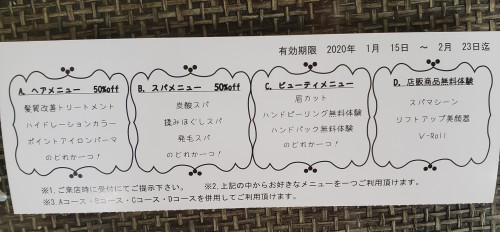 有効期限 2020年 1月 15日 ～ 2月 23日迄
A. ヘアメニュー 50%off
髪質改善トリートメント
ハイドレーションカラー
ポイントアイロンパーマ
のどれか一つ!
B. スパメニュー 50%off
炭酸スパ
揉みほぐしスパ
発毛スパ
のどれか一つ!
C. ビューティメニュー
眉カット
ハンドピーリング無料体験
ハンドパック無料体験
のどれか一つ!
D. 店販商品無料体験
スパマシーン
リフトアップ美顔器
V-Roll
※1.ご来店時に受付にてご提示下さい。 ※2.上記の中からお好きなメニューを一つご利用頂けます。
※3.Aコース・Bコース・Cコース・Dコースを併用してご利用頂けます。